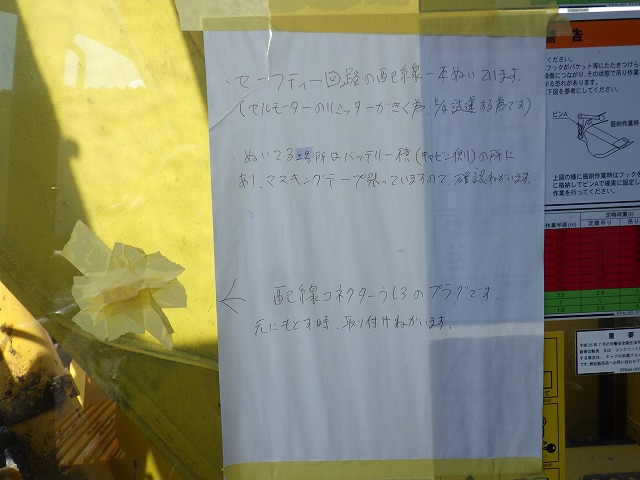 ・セーフティー回路の配線一本ぬいています。
(セルモーターのリミッターがきく為、試運する為です)
ぬいてる場所はバッテリー横(キャビン側)の所に
あり、マスキングテープ張っていますので、確認ねがいます。
← 配線コネクターうしろのプラグです。
元にもどす時、取り付けねがいます。
警告
ください。
フックがバケット等にたたきつけら
損傷につながり、その状態で吊り作業
する恐れがあります。
下図を参考にしてください。
ピンA
掘削作業時
上図の様に掘削作業時はフックを
に格納してピンAで確実に固定し
作業を行ってください。
定格荷重(t)
作業半径(m)
定置吊り
重要